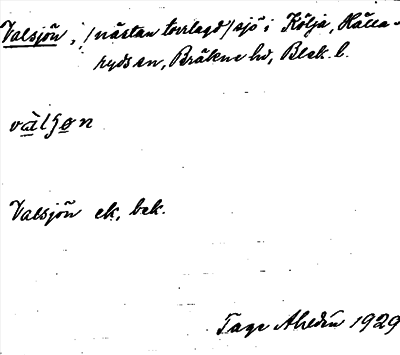 Valsjön, /nästan torrlagd/ sjö i Kölja, Hälla-
ryds sn, Bräkne hd, Blek. l.
vàlʃon
Valsjön ek, bek.
Tage Ahldén 1929